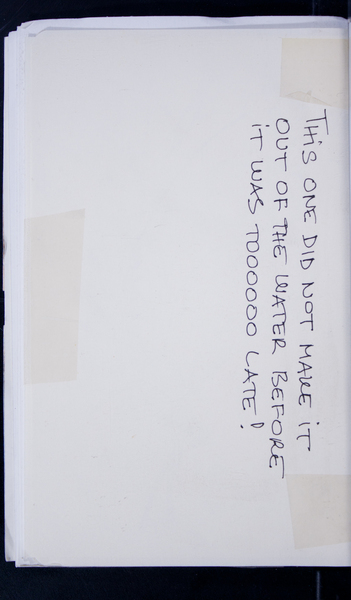 THIS ONE DID NOT MAKE IT
OUT OF THE WATER BEFORE
IT WAS TOOOOOO LATE!